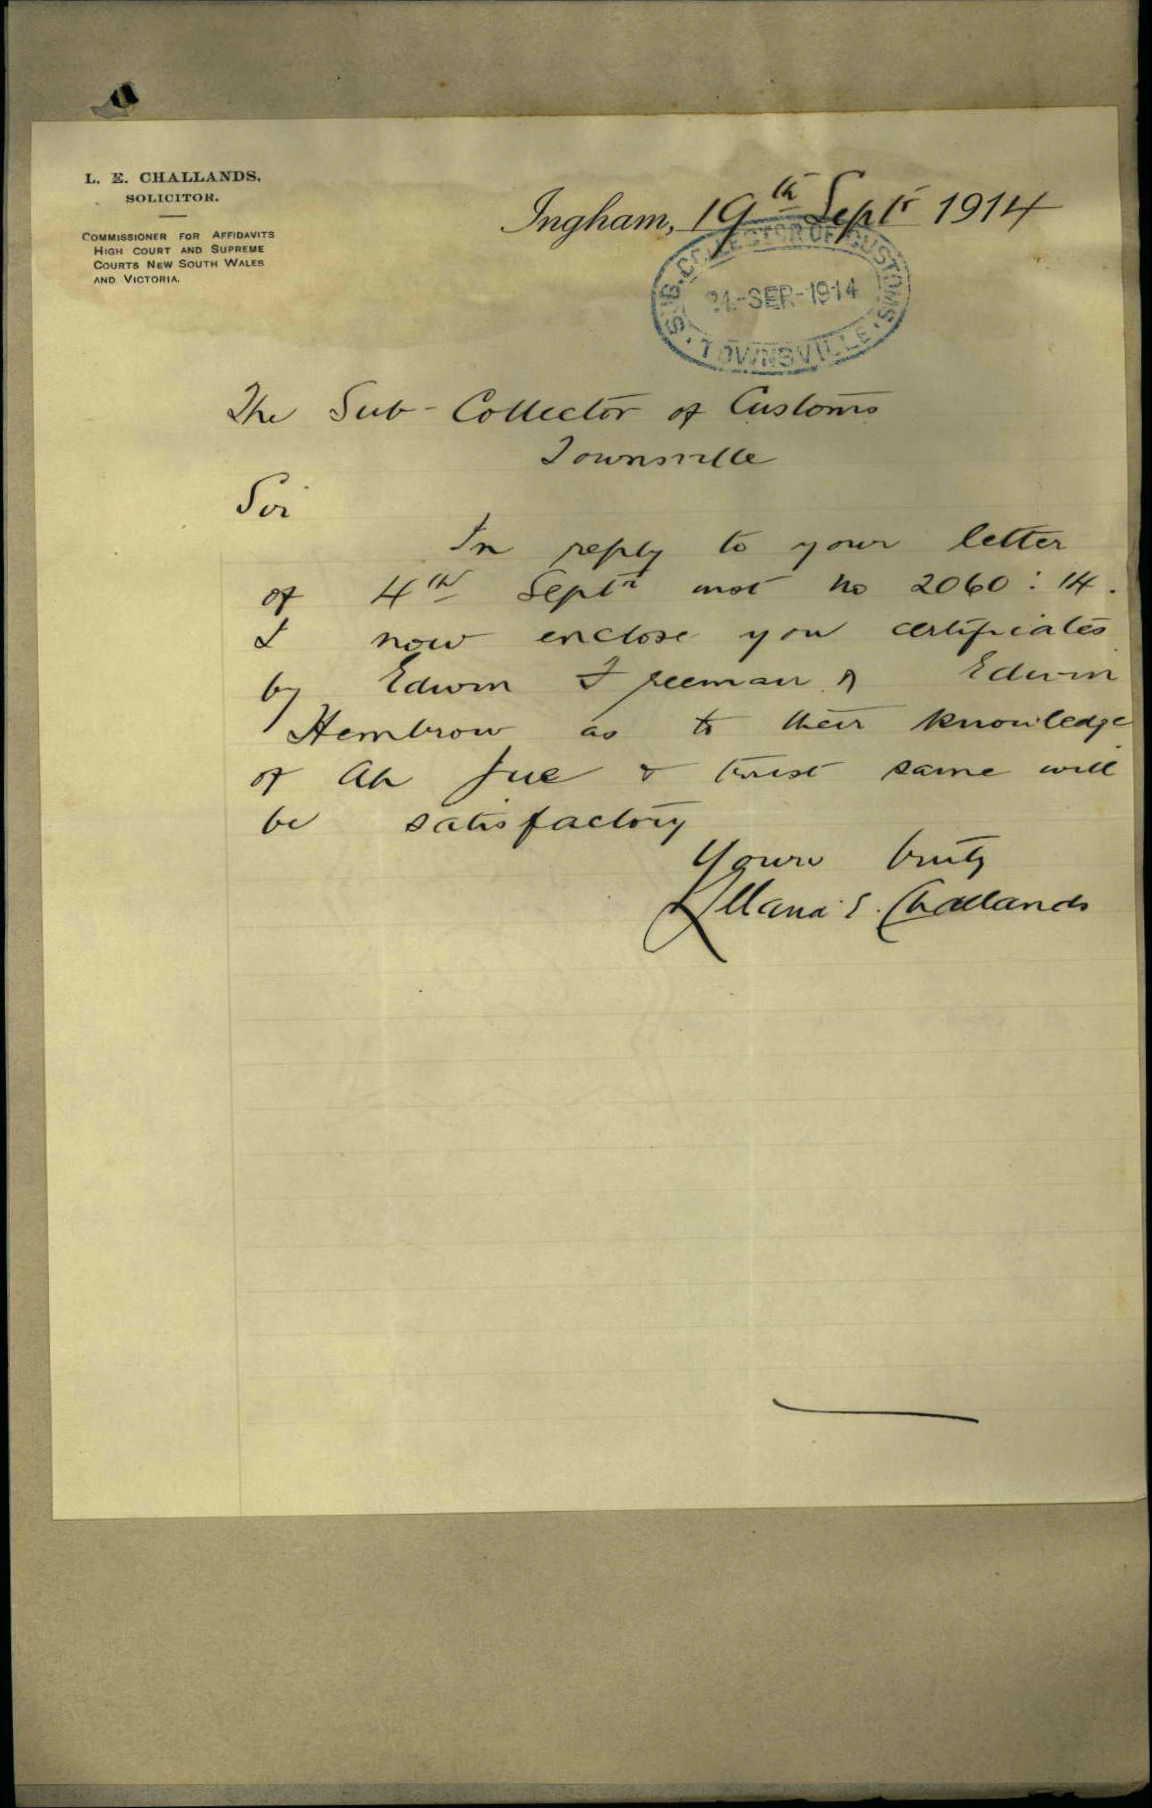 L. E. CHALLANDS.
SOLICITOR.
COMMISSIONER FOR AFFIDAVITS
HIGH COURT AND SUPREME
COURTS NEW SOUTH WALES
AND VICTORIA.
Ingham, 19th Septr 1914
SUB-COLLECTOR OF CUSTOMS
21-SEP-1914
TOWNSVILLE
The Sub-Collector of Customs
Townsville
Sir
In reply to your letter
of 4th Septr inst No 2060:14.
I now enclose you certificates
by Edwin Freeman & Edwin
Hembrow as to their knowledge
of Ah Jue & trust same will
be satisfactory
Yours truly
E. Challands